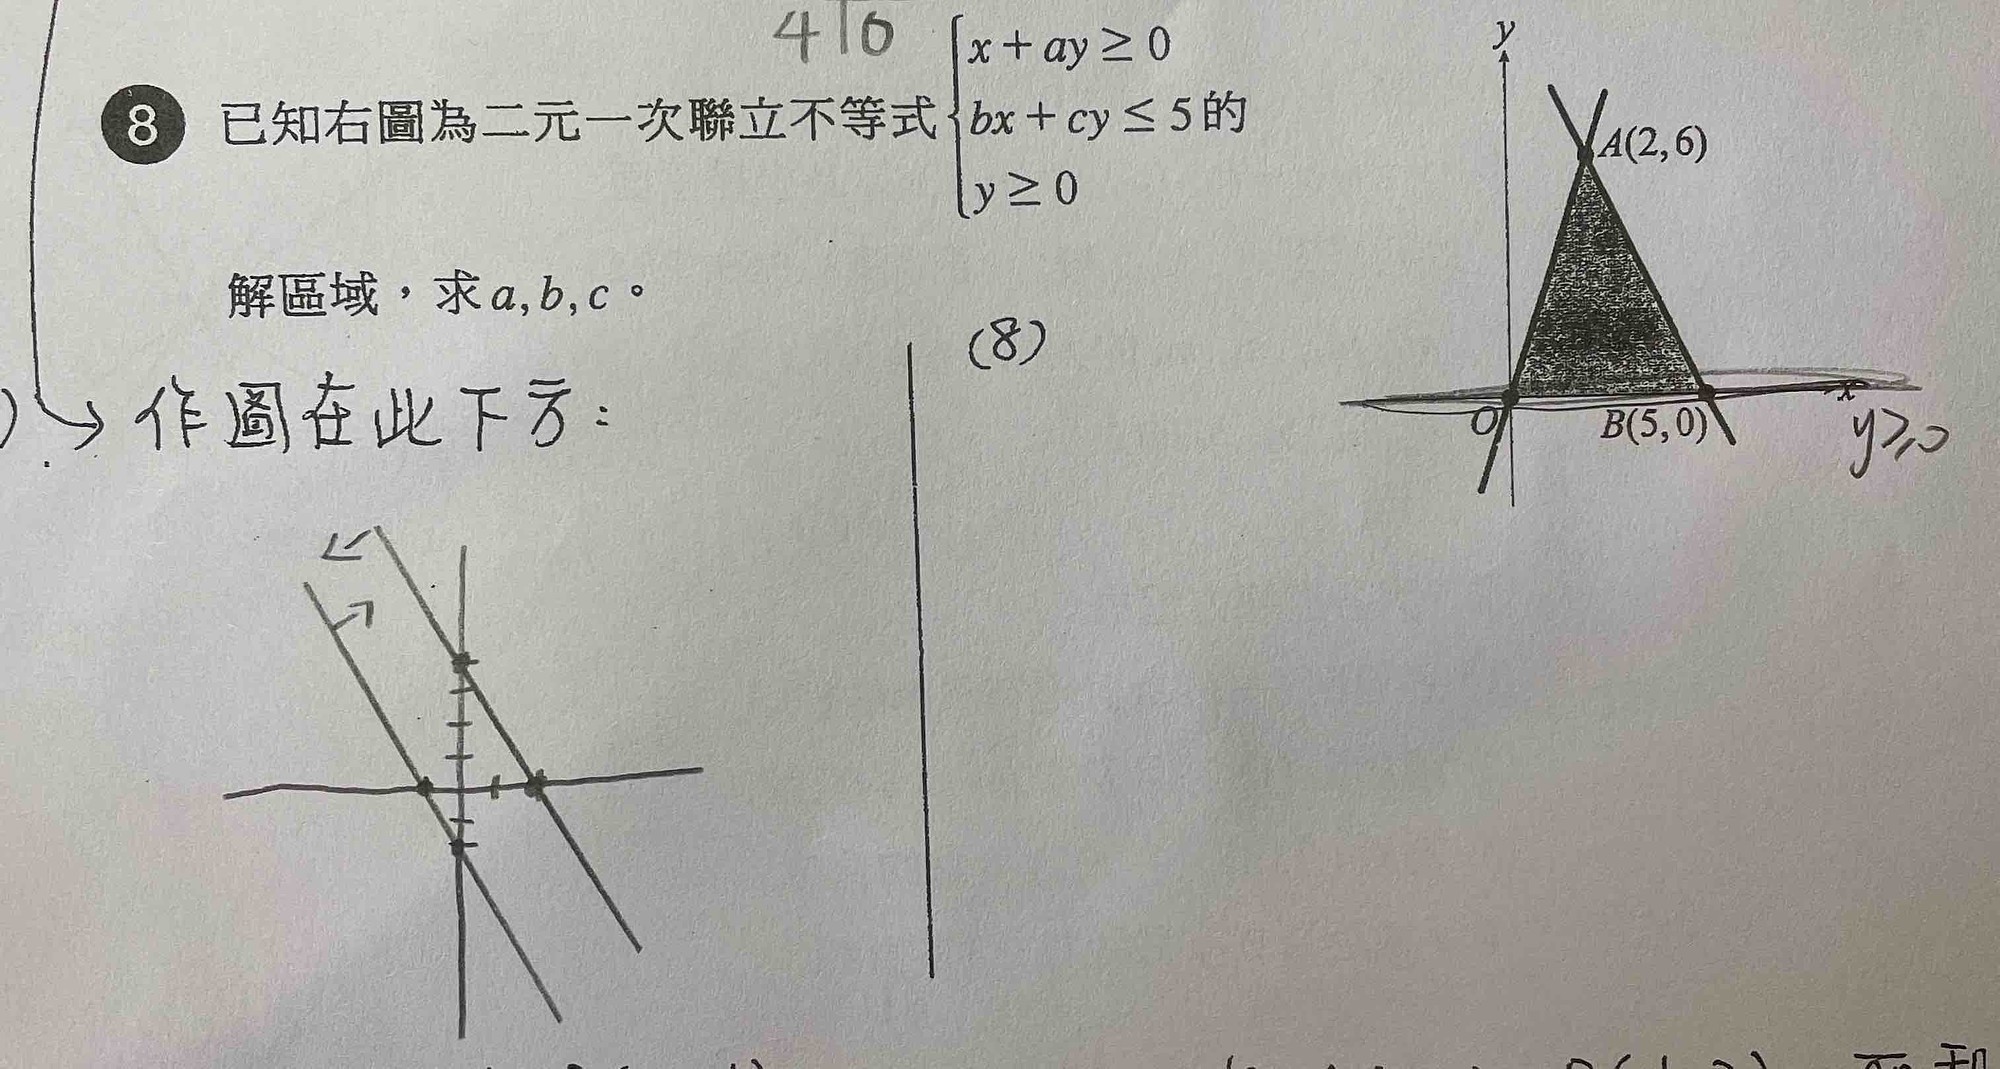 4 6
8 已知右圖為二元一次聯立不等式 { x + ay ≥ 0
bx + cy ≤ 5 的
y ≥ 0
解區域，求 a, b, c。
y
A(2, 6)
O
B(5, 0)
x
y≥0
(8)
作圖在此下方：